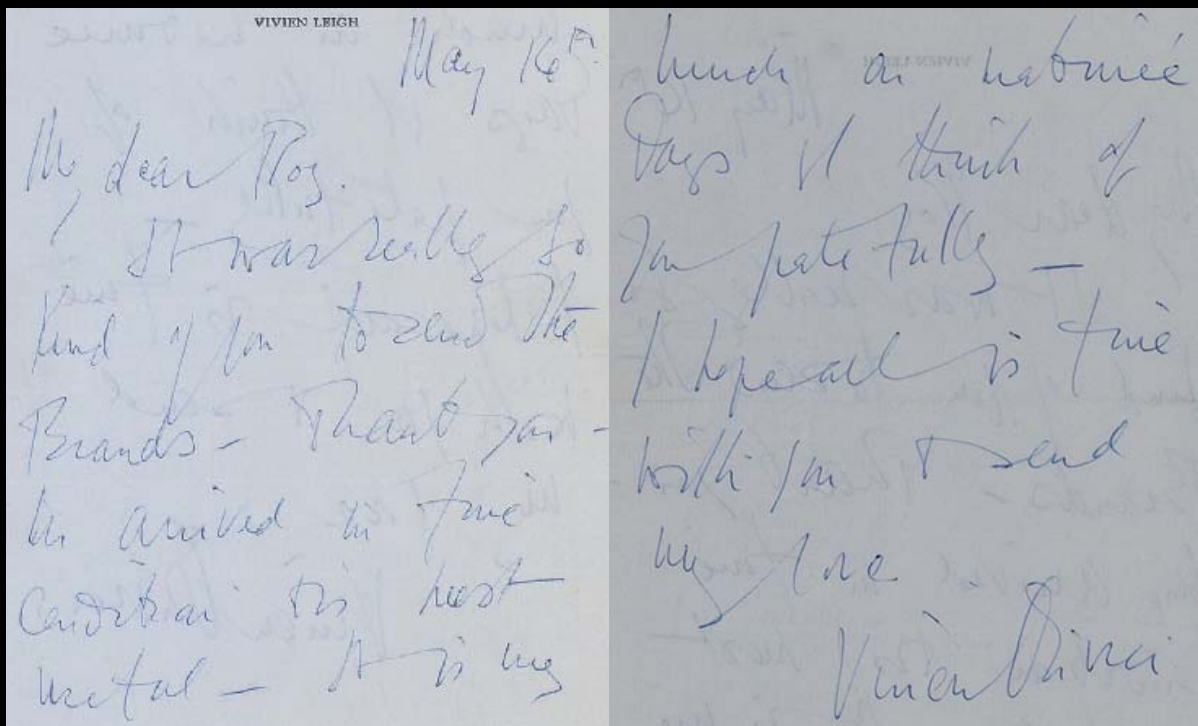 VIVIEN LEIGH
May 16th
My dear Roy.
It was really so
kind of you to send the
Brands - Thank you -
arrived in fine
condition & is most
useful - It is my
lunch on matinée
Days & I think of
you gratefully -
I hope all is fine
with you & send
my love
Vivien Olivier